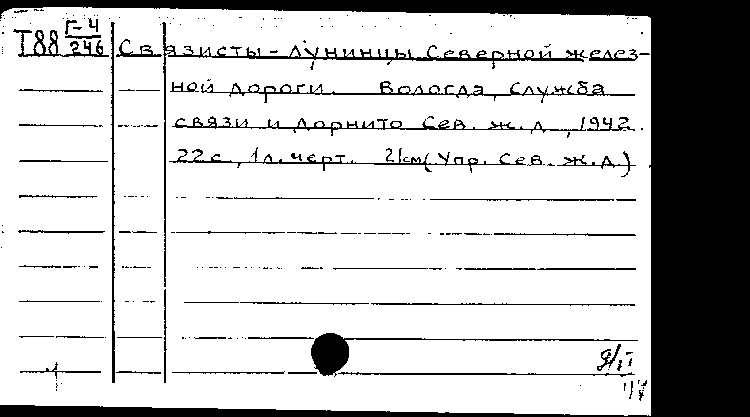 Т88 Г-4
246
Связисты - лунинцы Северной желез-
ной дороги. Вологда, Служба
связи и Дорнито Сев. ж. д., 1942.
22 с., 1 л. черт. 21 см (Упр. Сев. ж. д.)